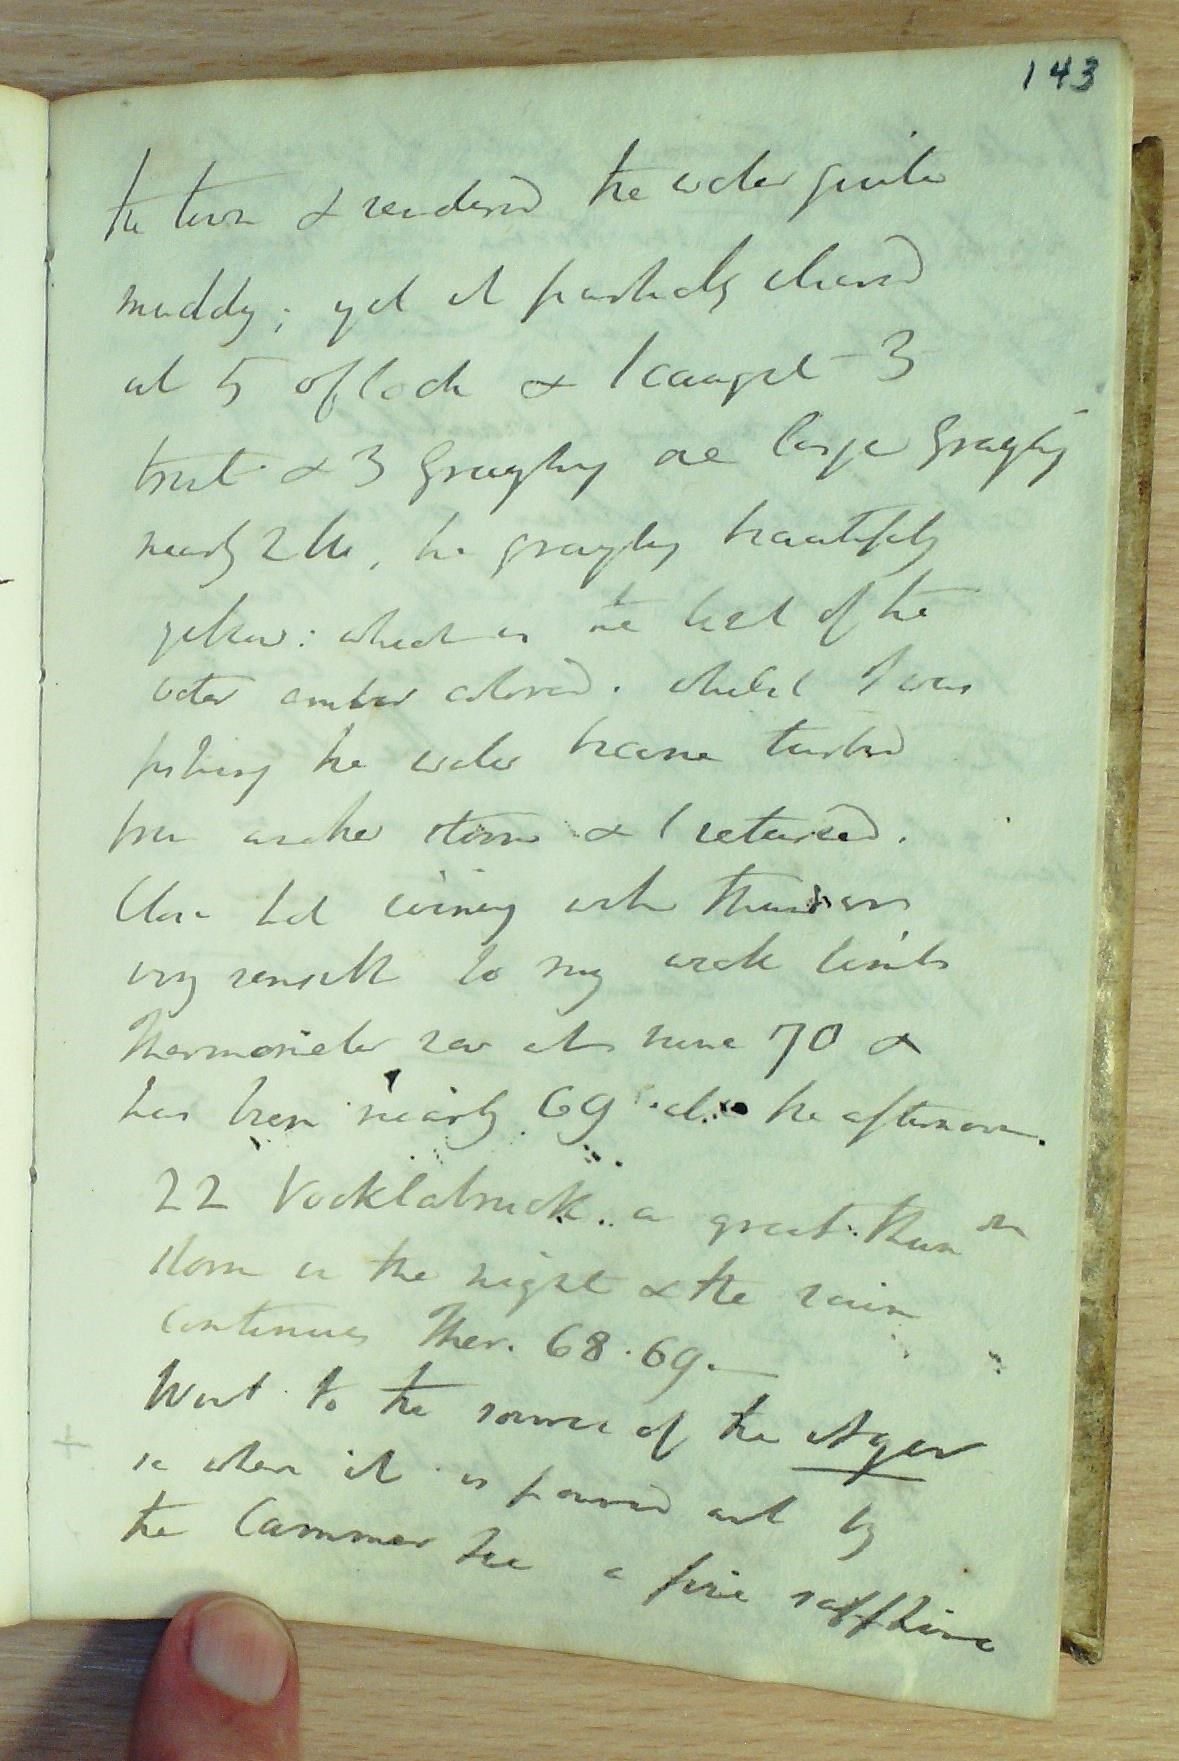 143
the town & rendered the water quite
muddy; yet it partially cleared
at 5 o'clock & I caught 3
trout & 3 Grayling one large Grayling
nearly 2 lb, the grayling beautifully
yellow: which is the tint of the
water amber colored. whilst I was
fishing the water became turbid
from another storm & I returned.
Close hot evening with thunder
very sensible to my weak limbs
Thermometer now at nine 70 &
has been nearly 69 the afternoon.
22 Vocklabruck. a great Thunder
storm in the night & the rain
continues Ther. 68.69.
Went to the source of the Ager
ie where it is poured out by
the Cammer See a fine sapphire